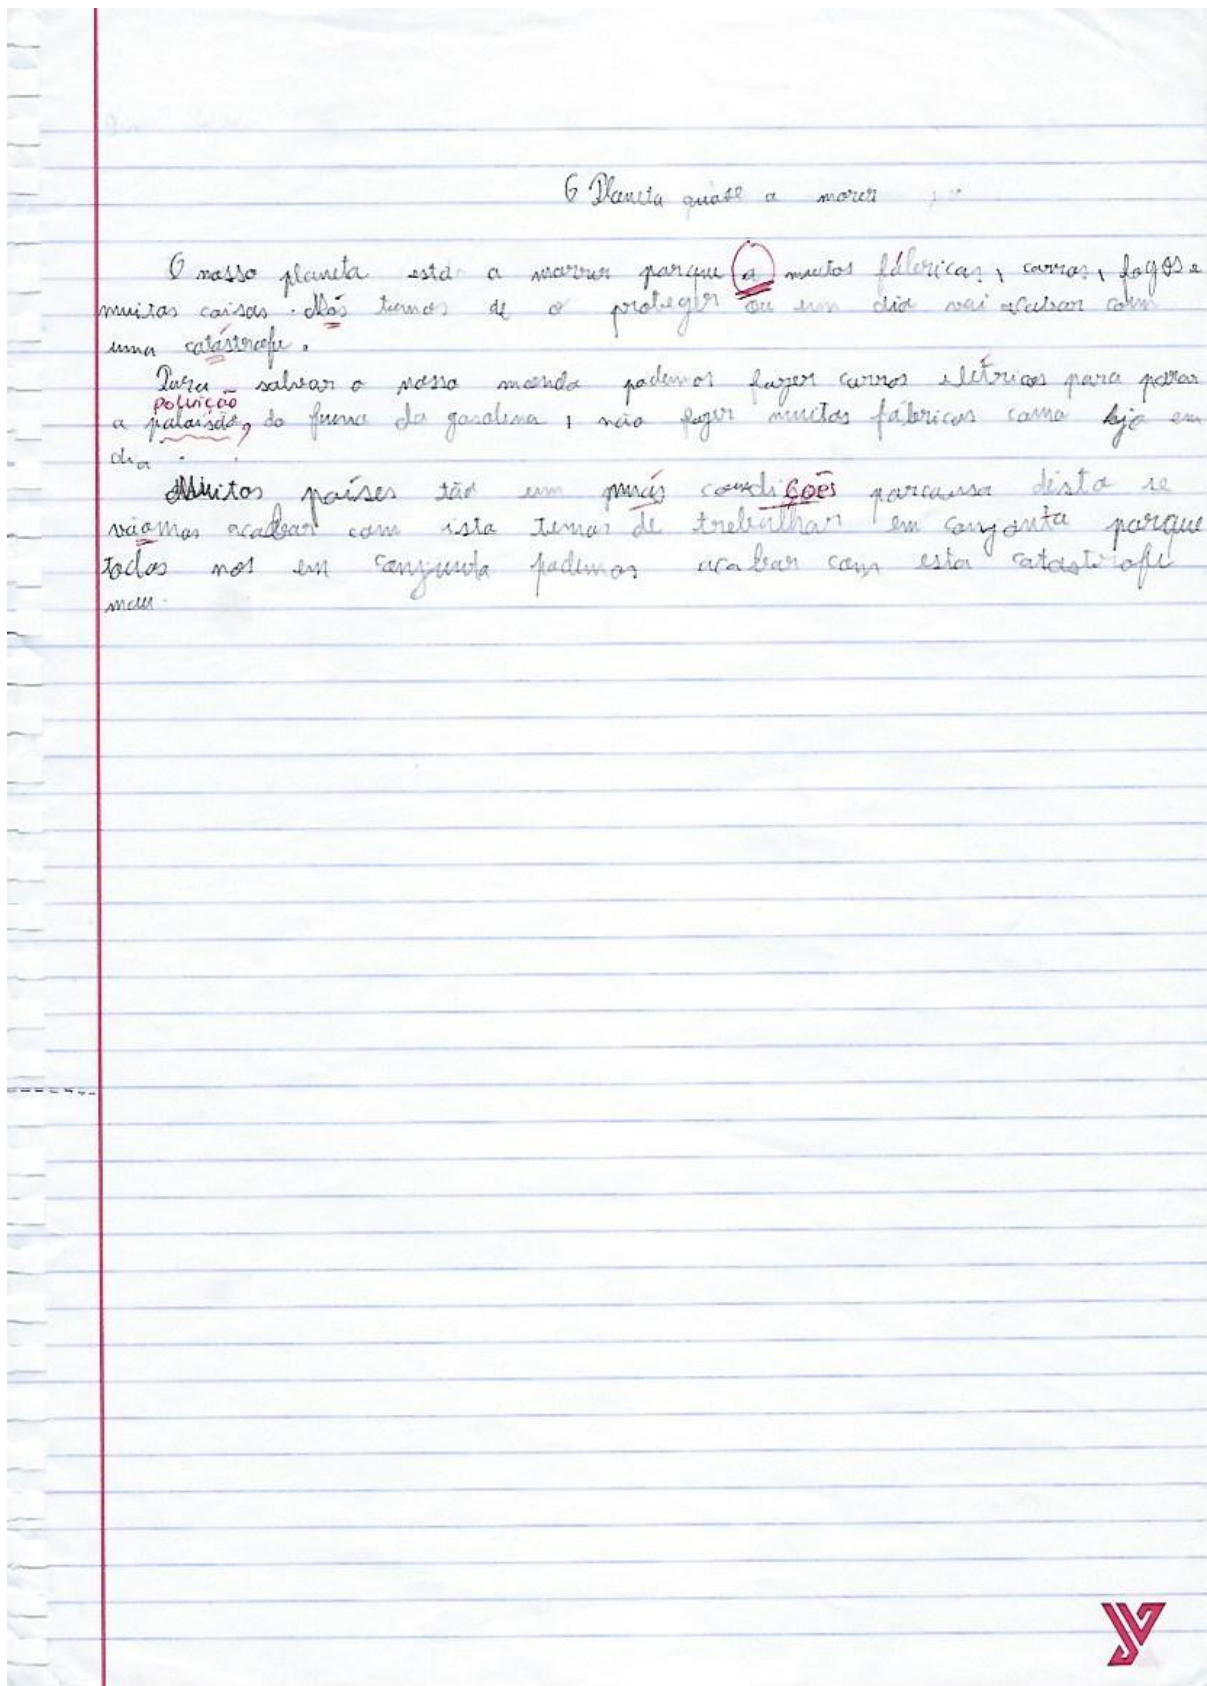 O Planeta quase a morer
O nosso planeta está a morrer porque a muitas fábricas, carros, fogos e
muitas coisas. Nós temos de o proteger ou um dia vai acabar com
uma catástrofe.
Para salvar o nosso mundo podemos fazer carros elétricos para parar
poluição
a paluisão, do fumo da gasolina, não fazer muitas fábricas como hje em
dia.
Muitos países tão um más condições porcausa disto se
vãomos acabar com isto temos de trebalhar em congonto porque
todos nos em conjunto podemos acabar com esta catastrofe